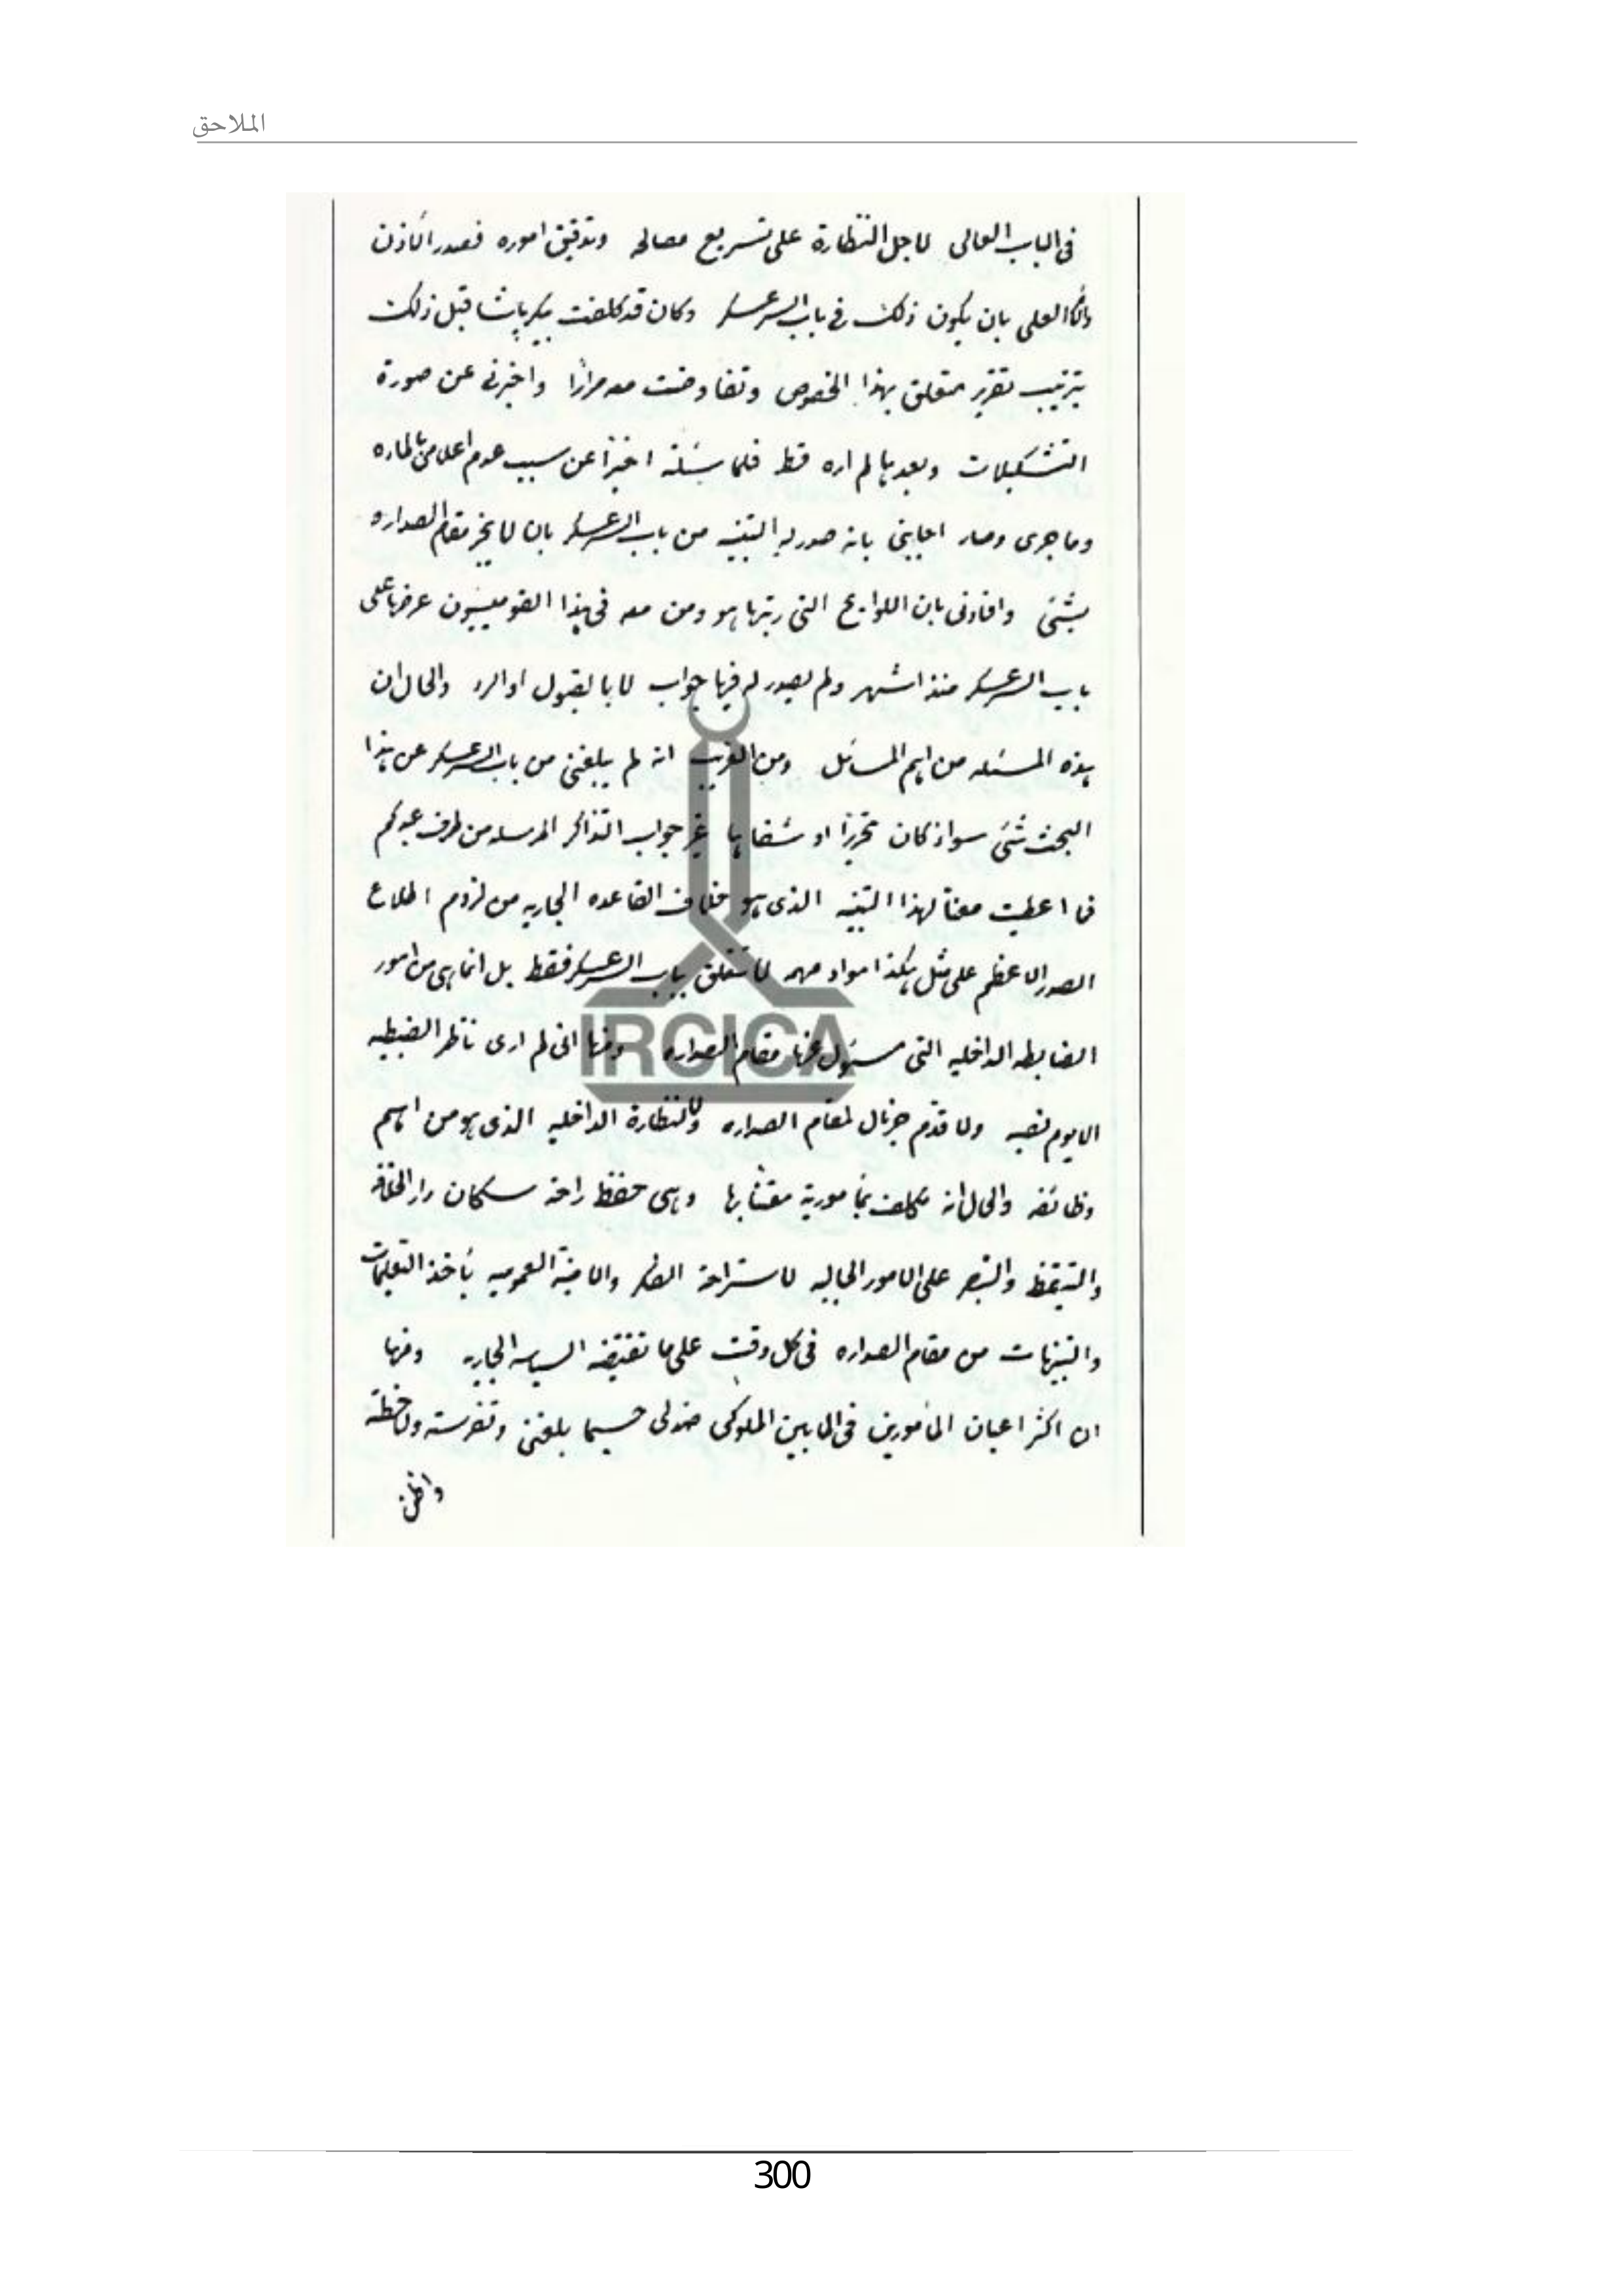 الملاحق
فى الباب العالى لاجل النظارة على تسريع مصالحه وتدقيق اموره فصدر الاذن
العلى بان يكون ذلك فى باب السرعسكر وكان قد كلفت بكر باشا قبل ذلك
بترتيب تقرير متعلق بهذا الخصوص وتفاوضت معه مرارًا واخبرنى عن صورة
التشكيلات وبعدها لم اره قط فلما سئلته اخيرًا عن سبب عدم اعلامى
وما جرى وصار اجابنى بانه صدر له التنبيه من باب السرعسكر بان لا يخبر مقام الصداره
بشئ وافادنى بان اللوايح التى رتبها هو ومن معه فى هذا القوميسيون عرضها على
باب السرعسكر منذ اشهر ولم يصدر له فيها جواب لا بالقبول او الرد والحال ان
هذه المسئله من اهم المسائل ومن الغريب انه لم يبلغنى من باب السرعسكر عن هذا
البحث شئ سواء كان تحريرًا او شفاها غير جواب التذاكر المرسله من طرف عبدكم
فما اعطيت معنًا لهذا التنبيه الذى هو خلاف القاعده الجاريه من لزوم اطلاع
الصدر الاعظم على مثل هكذا مواد مهمه لا تتعلق بباب السرعسكر فقط بل انما هى من امور
الضابطه الداخليه التى مسؤل عنها مقام الصداره ومنها انى لم ارى ناظر الضبطيه
الا يوم نصبه ولا قدم جرنال لمقام الصداره ولا لنظارة الداخليه الذى هو من اهم
وظائفه والحال انه مكلف بمأمورية معتنًا بها وهى حفظ راحة سكان دار الخلافه
والتيقظ والتبصر على الامور الجاليه لاستراحة الفكر والامنية العموميه بأخذ التعليمات
والتنبيهات من مقام الصداره فى كل وقت على ما تقتضيه السياسه الجاريه ومنها
ان اكثر اعيان المأمورين فى المابين الملوكى ضدى حسبما بلغنى وتفرسته ولاحظته
واظن
IRCICA
300